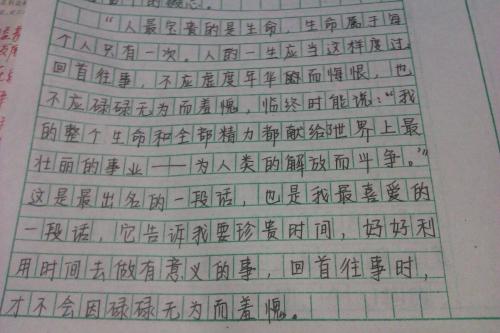 “人最宝贵的是生命，生命属于每
个人只有一次。人的一生应当这样度过
回首往事，不应虚度年华而悔恨，也
不应碌碌无为而羞愧，临终时能说：“我
的整个生命和全部精力都献给世界上最
壮丽的事业——为人类的解放而斗争。”
这是最出名的一段话，也是我最喜爱的
一段话，它告诉我要珍贵时间，好好利
用时间去做有意义的事，回首往事时，
才不会因碌碌无为而羞愧。